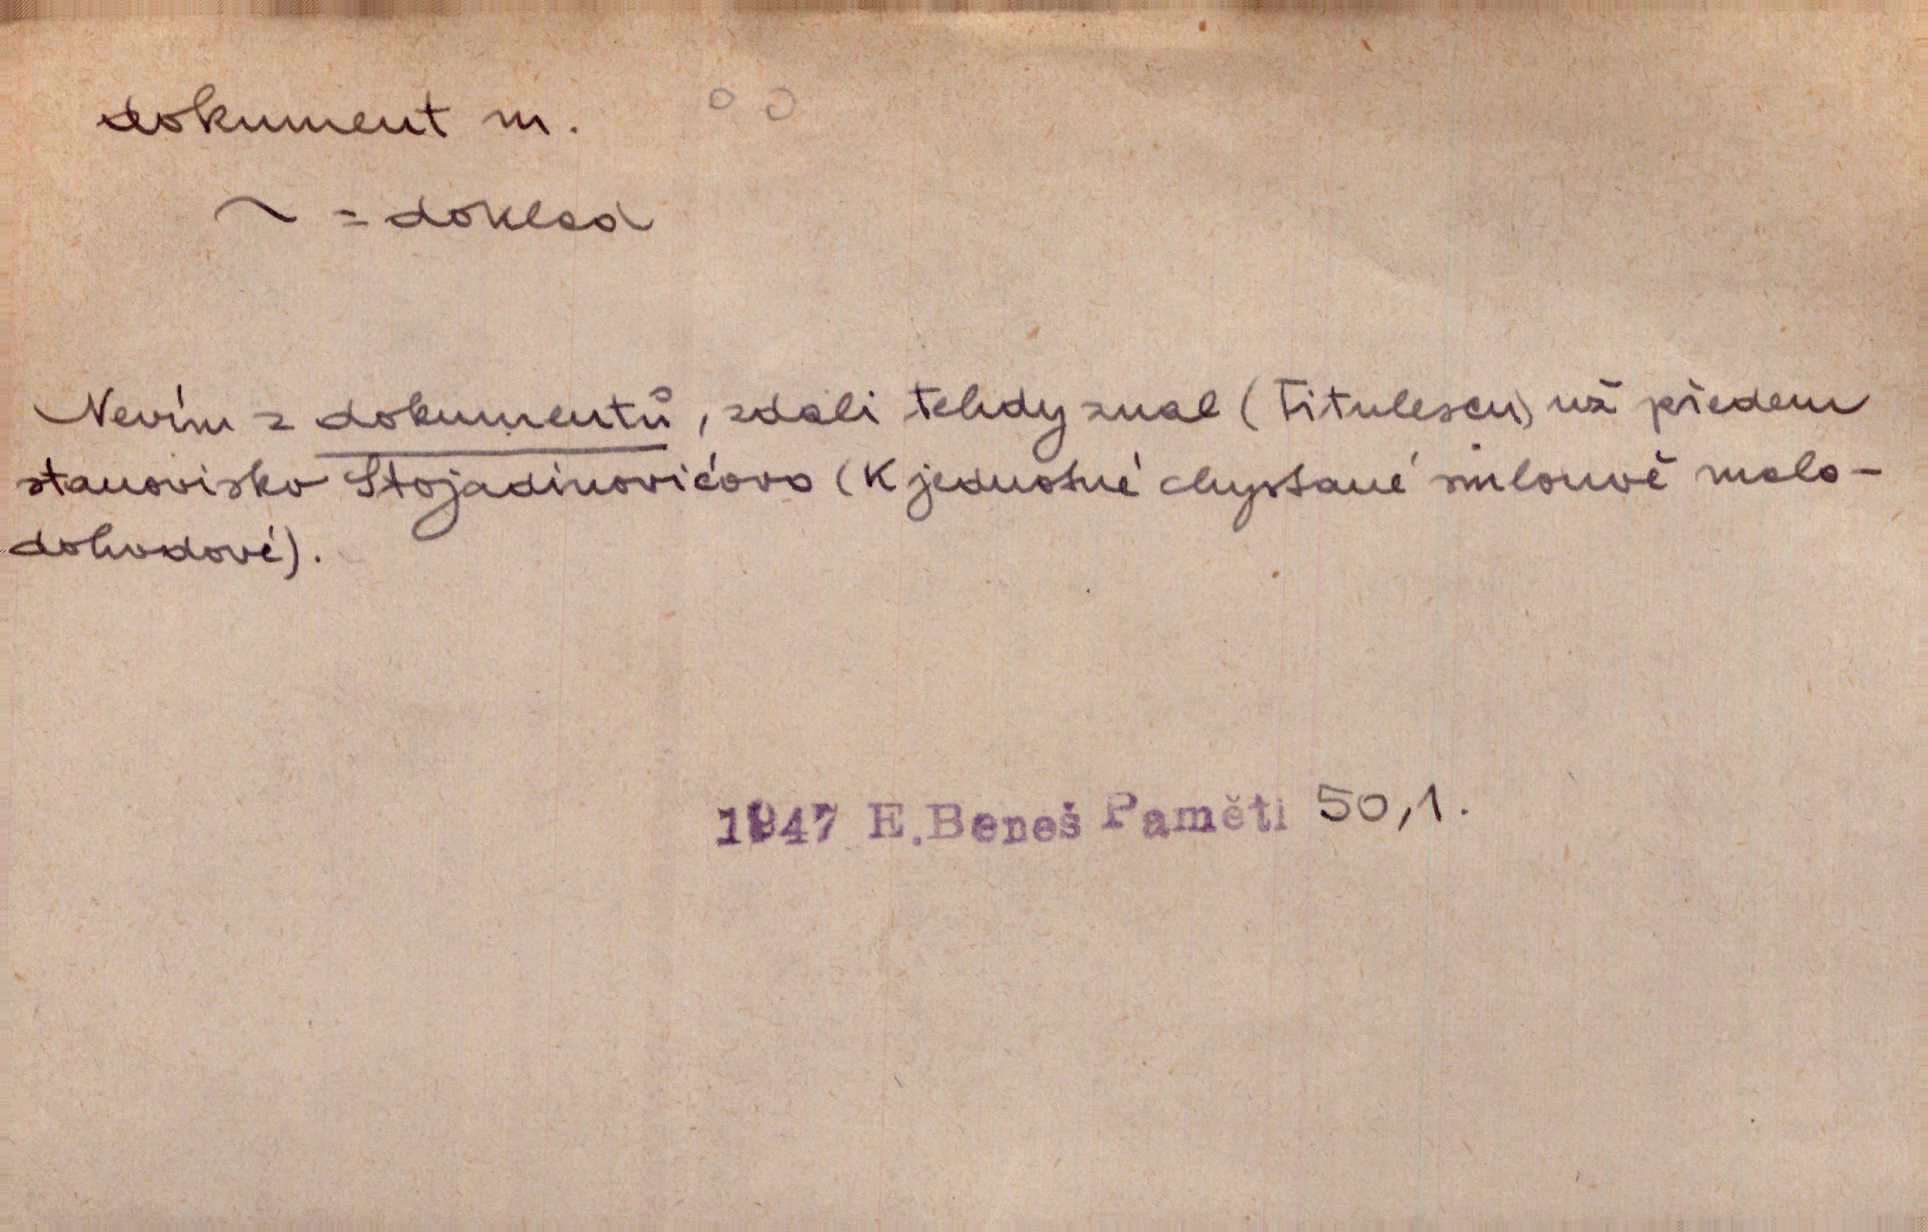 dokument m.
~ = doklad
Nevím z dokumentů, zdali tehdy znal (Titulescu) už předem
stanovisko Stojadinovićovo (K jednotné chystané smlouvě malo-
dohodové).
1947 E.Beneš Paměti 50,1.